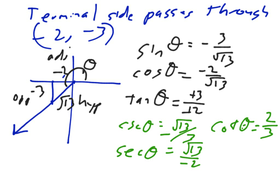 Terminal side passes through
(-2, -3)
adj
-2
θ
opp -3
√13 hyp
sin θ = -3/√13
cos θ = -2/√13
tan θ = +3/+2
csc θ = √13/-3
cot θ = 2/3
sec θ = √13/-2